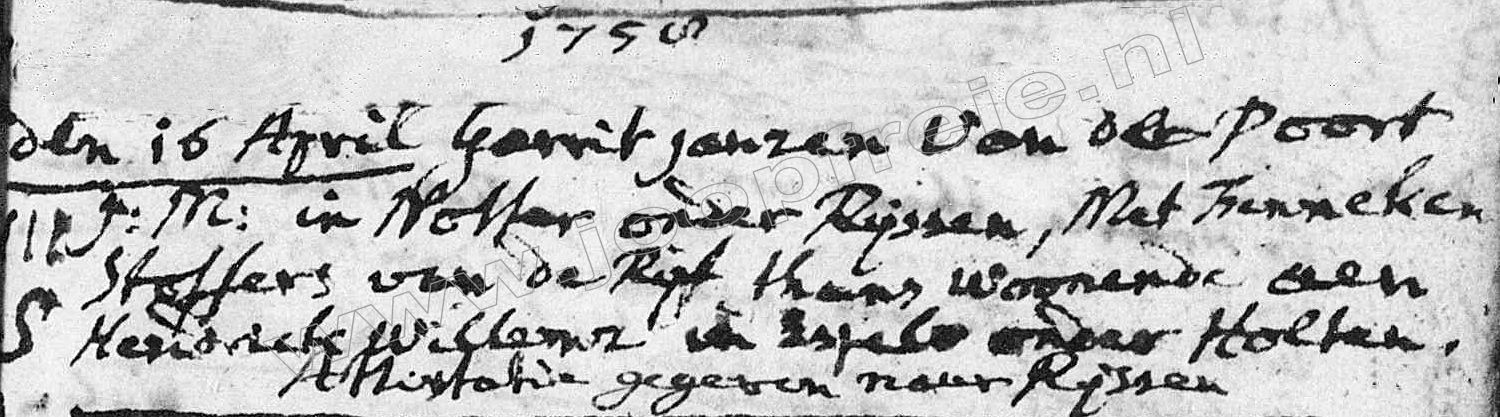 1758
den 16 April Gerrit Janzen Van de Poort
III J: M: in Notter onder Rijssen, Met Fenneken
Stoffers van de Rijt thans woonende aen
S Hendrick Willemz in onder Holten.
Attistatie gegeven naer Rijssen
www.joopfreie.nl